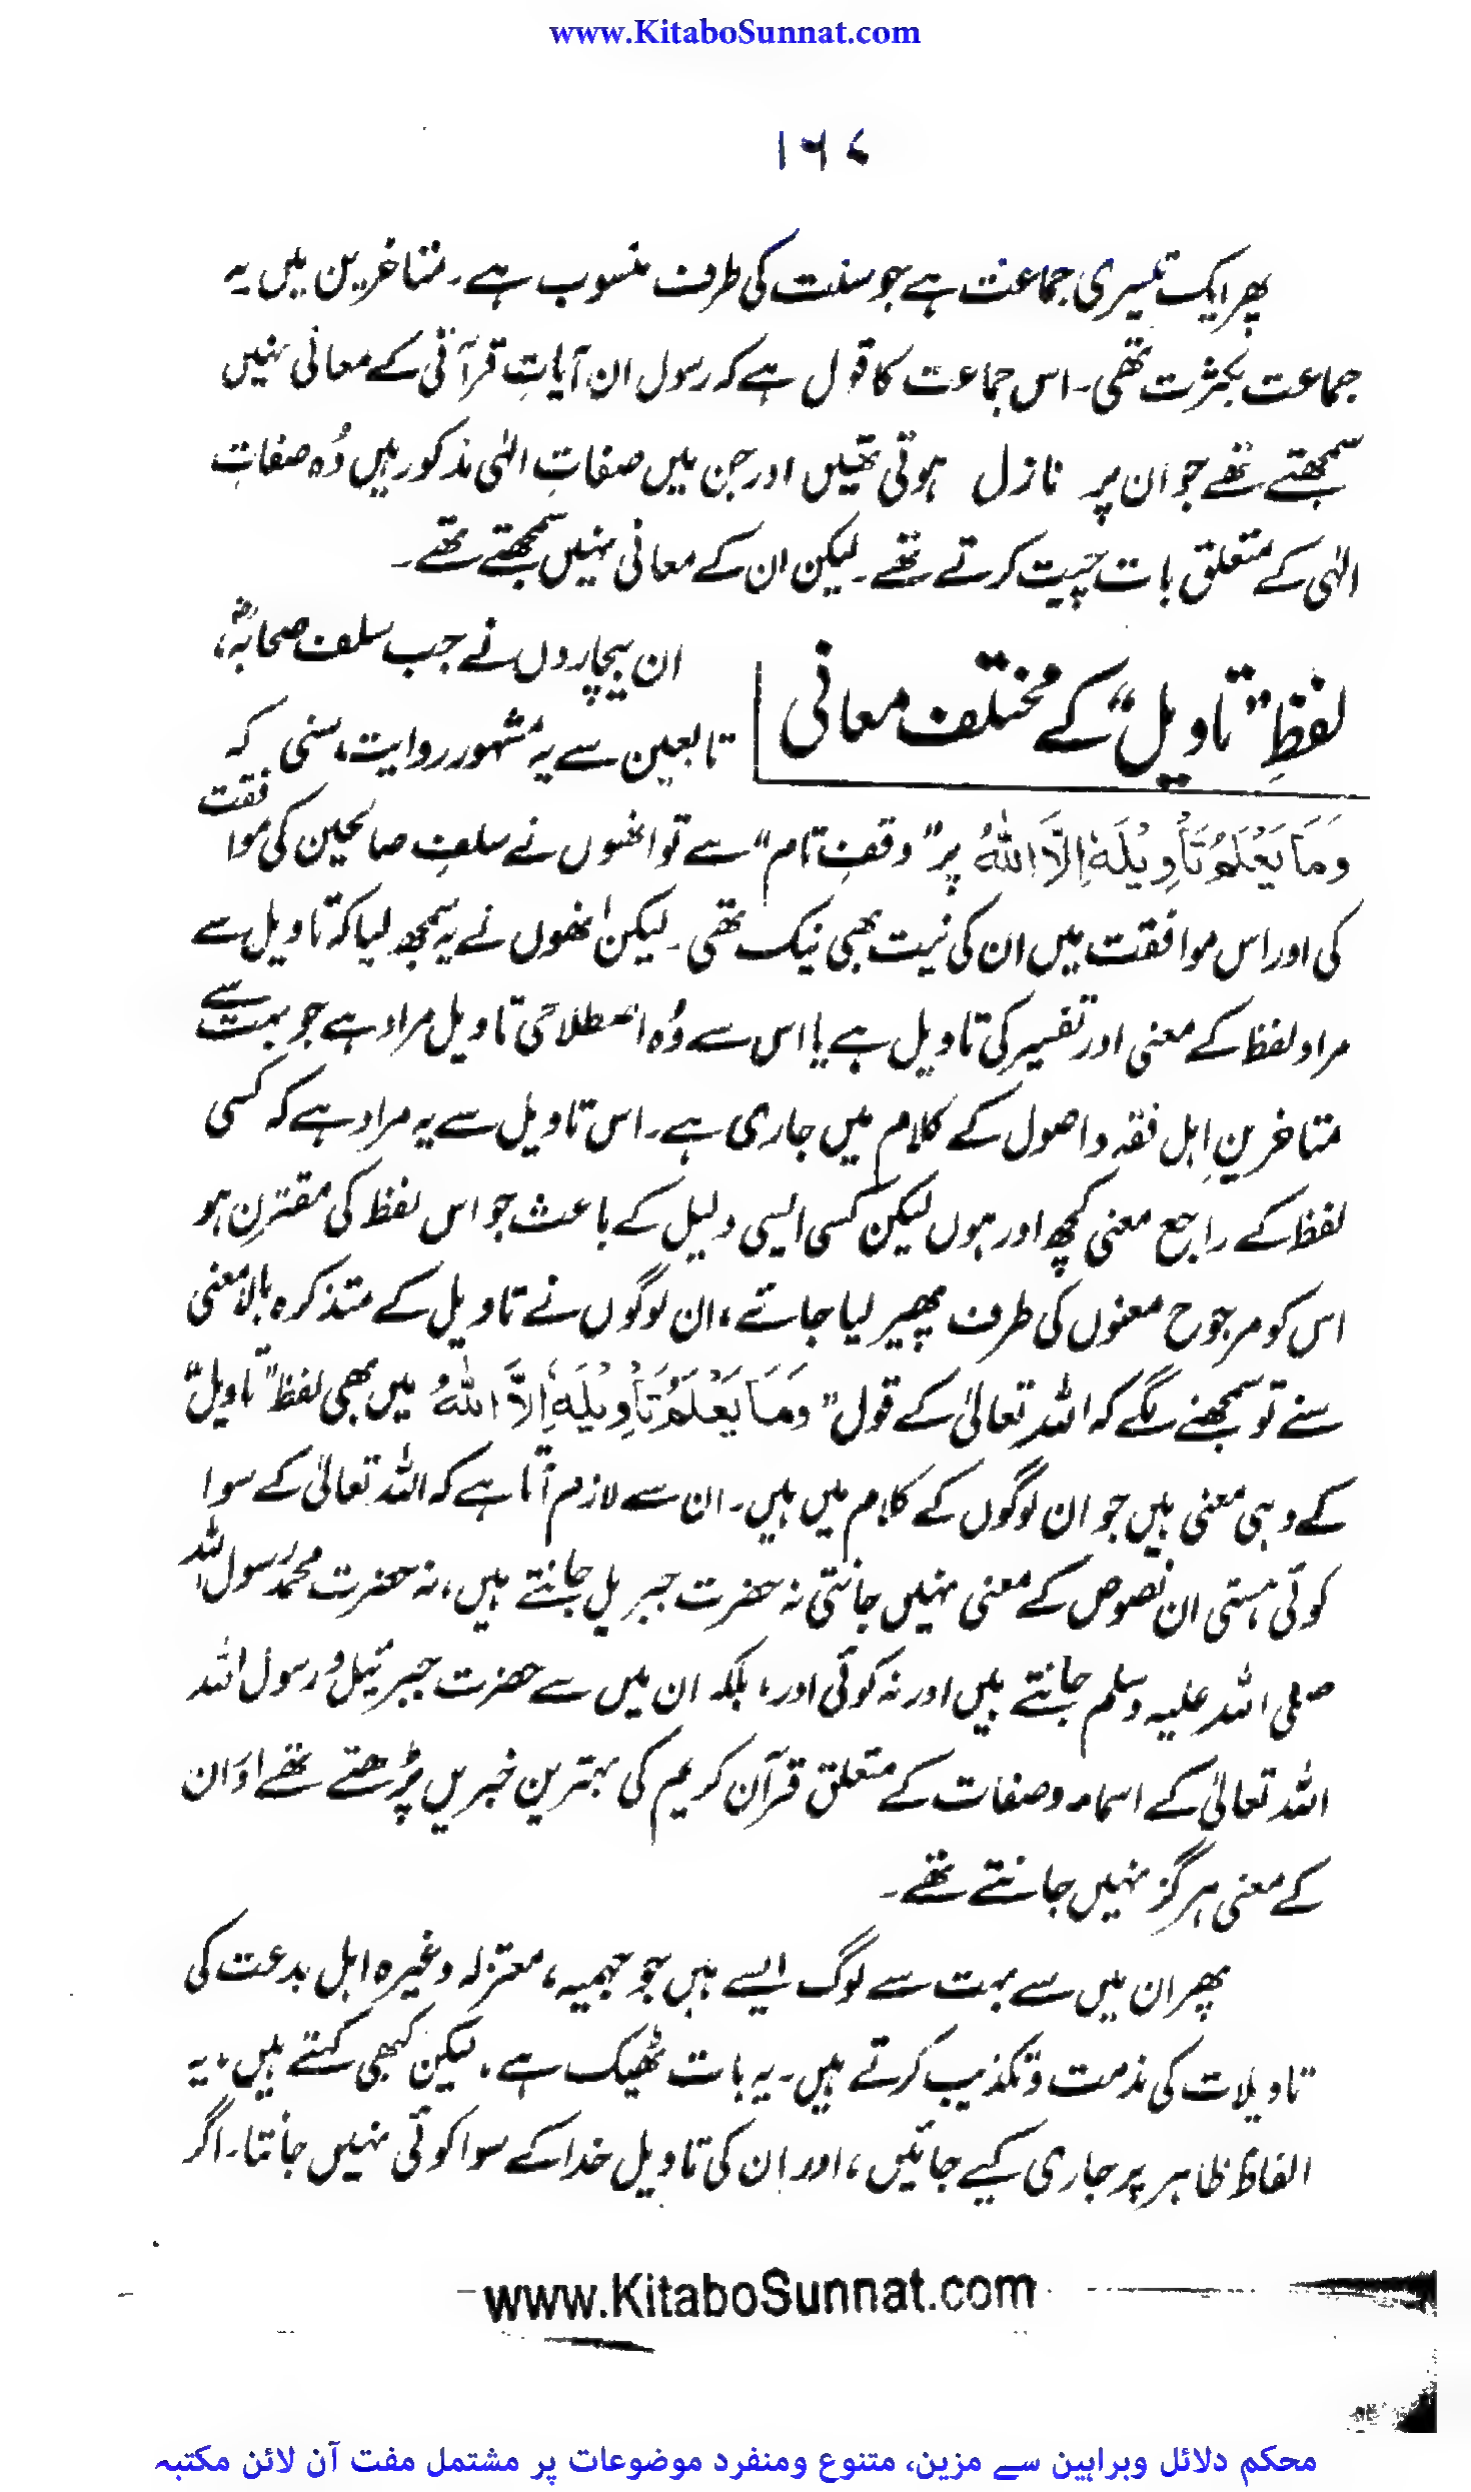 www.KitaboSunnat.com
۱۶۷
پھر ایک تیسری جماعت ہے جو سنت کی طرف منسوب ہے۔ متاخرین میں یہ
جماعت بکثرت تھی۔ اس جماعت کا قول ہے کہ رسول ان آیاتِ قرآنی کے معانی نہیں
سمجھتے تھے جو ان پر نازل ہوتی تھیں اور جن میں صفاتِ الٰہی مذکور ہیں وُہ صفاتِ
الٰہی کے متعلق بات چیت کرتے تھے۔ لیکن ان کے معانی نہیں سمجھتے تھے۔
لفظِ "تاویل" کے مختلف معانی
ان بیچاروں نے جب سلف صحابہؓ،
تابعین سے یہ مشہور روایت سنی کہ
وَمَا يَعْلَمُ تَأْوِيْلَهٗ اِلَّا اللّٰهُ پر "وقفِ تام" سے تو انھوں نے سلفِ صالحین کی موافقت
کی اور اس موافقت میں ان کی نیت بھی نیک تھی۔ لیکن اُنھوں نے یہ سمجھ لیا کہ تاویل سے
مراد لفظ کے معنی اور تفسیر کی تاویل ہے یا اس سے وُہ اصطلاحی تاویل مراد ہے جو بہت سے
متاخرینِ اہل فقہ و اصول کے کلام میں جاری ہے۔ اس تاویل سے یہ مراد ہے کہ کسی
لفظ کے راجع معنی کچھ اور ہوں لیکن کسی ایسی دلیل کے باعث جو اس لفظ کی مقترن ہو
اس کو مرجوح معنوں کی طرف پھیر لیا جائے، ان لوگوں نے تاویل کے متذکرہ بالا معنی
سنے تو سمجھنے لگے کہ اللہ تعالیٰ کے قول "وَمَا يَعْلَمُ تَأْوِيْلَهٗ اِلَّا اللّٰهُ میں بھی لفظ "تاویل"
کے وہی معنی ہیں جو ان لوگوں کے کلام میں ہیں۔ ان سے لازم آتا ہے کہ اللہ تعالیٰ کے سوا
کوئی ہستی ان نصوص کے معنی نہیں جانتی نہ حضرت جبریل جانتے ہیں، نہ حضرت محمدؐ رسول اللہ
صلی اللہ علیہ وسلم جانتے ہیں اور نہ کوئی اور، بلکہ ان میں سے حضرت جبرئیل و رسول اللہ
اللہ تعالیٰ کے اسماء و صفات کے متعلق قرآن کریم کی بہترین خبریں پڑھتے تھے اور ان
کے معنی ہرگز نہیں جانتے تھے۔
پھر ان میں سے بہت سے لوگ ایسے ہیں جو جہمیہ، معتزلہ وغیرہ اہل بدعت کی
تاویلات کی مذمت و تکذیب کرتے ہیں۔ یہ بات ٹھیک ہے، لیکن کبھی کہتے ہیں، یہ
الفاظ ظاہر پر جاری کیے جائیں، اور ان کی تاویل خدا کے سوا کوئی نہیں جانتا۔ اگر
www.KitaboSunnat.com
محکم دلائل وبراہین سے مزین، متنوع ومنفرد موضوعات پر مشتمل مفت آن لائن مکتبہ